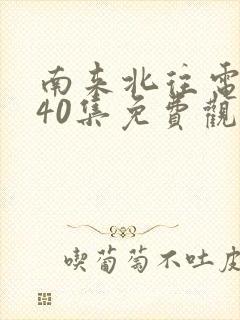 南来北往電
40集免費觀
喫葡萄不吐皮